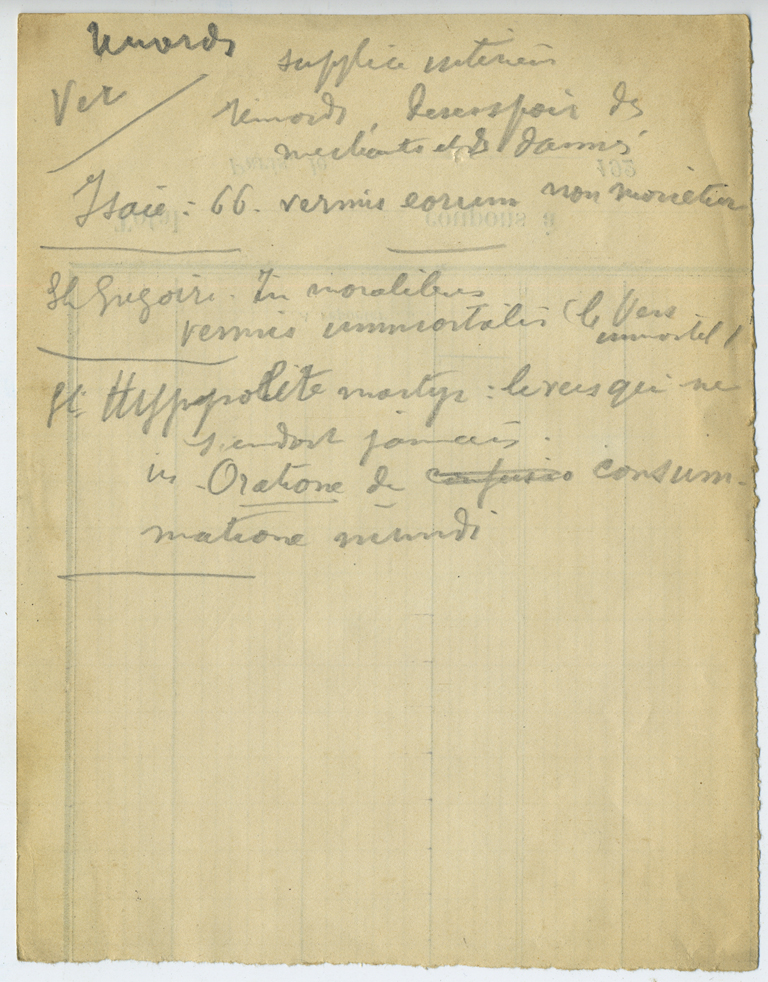 Remords
Ver
supplice intérieur
remords, desespoir des
mechants et des damnés
Isaie : 66. vermis eorum non morietur
St Gregoire. In moralibus
vermis immortalis (le Vers
immortel)
St Hyppolite martyr : le vers qui ne
s'endort jamais.
in Oratione de confusio consum-
matione mundi